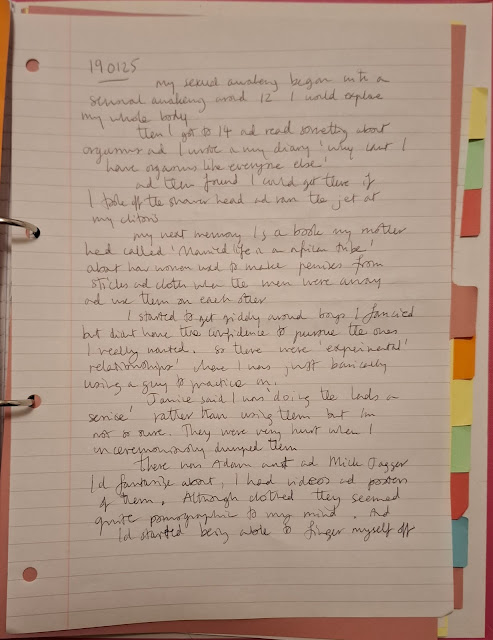 190125
my sexual awakening began with a
sensual awakening around 12 I would explore
my whole body
then I got to 14 and read something about
orgasms and I wrote in my diary 'why cant I
have orgasms like everyone else'
and then found I could get there if
I took off the shower head and ran the jet at
my clitoris
my next memory is a book my mother
had called 'Married life in an african tribe'
about how women used to make penises from
sticks and cloth when the men were away
and use them on each other
I started to get giddy around boys I fancied
but didnt have the confidence to pursue the ones
I really wanted. so there were 'experimental
relationships' where I was just basically
using a guy to practice on.
Janice said I was 'doing the lads a
service' rather than using them but im
not so sure. They were very hurt when I
unceremoniously dumped them
There was Adam and Mick Jagger
I'd fantasize about, I had videos and posters
of them. Although clothed they seemed
quite pornographic to my mind. And
I'd started being able to finger myself off